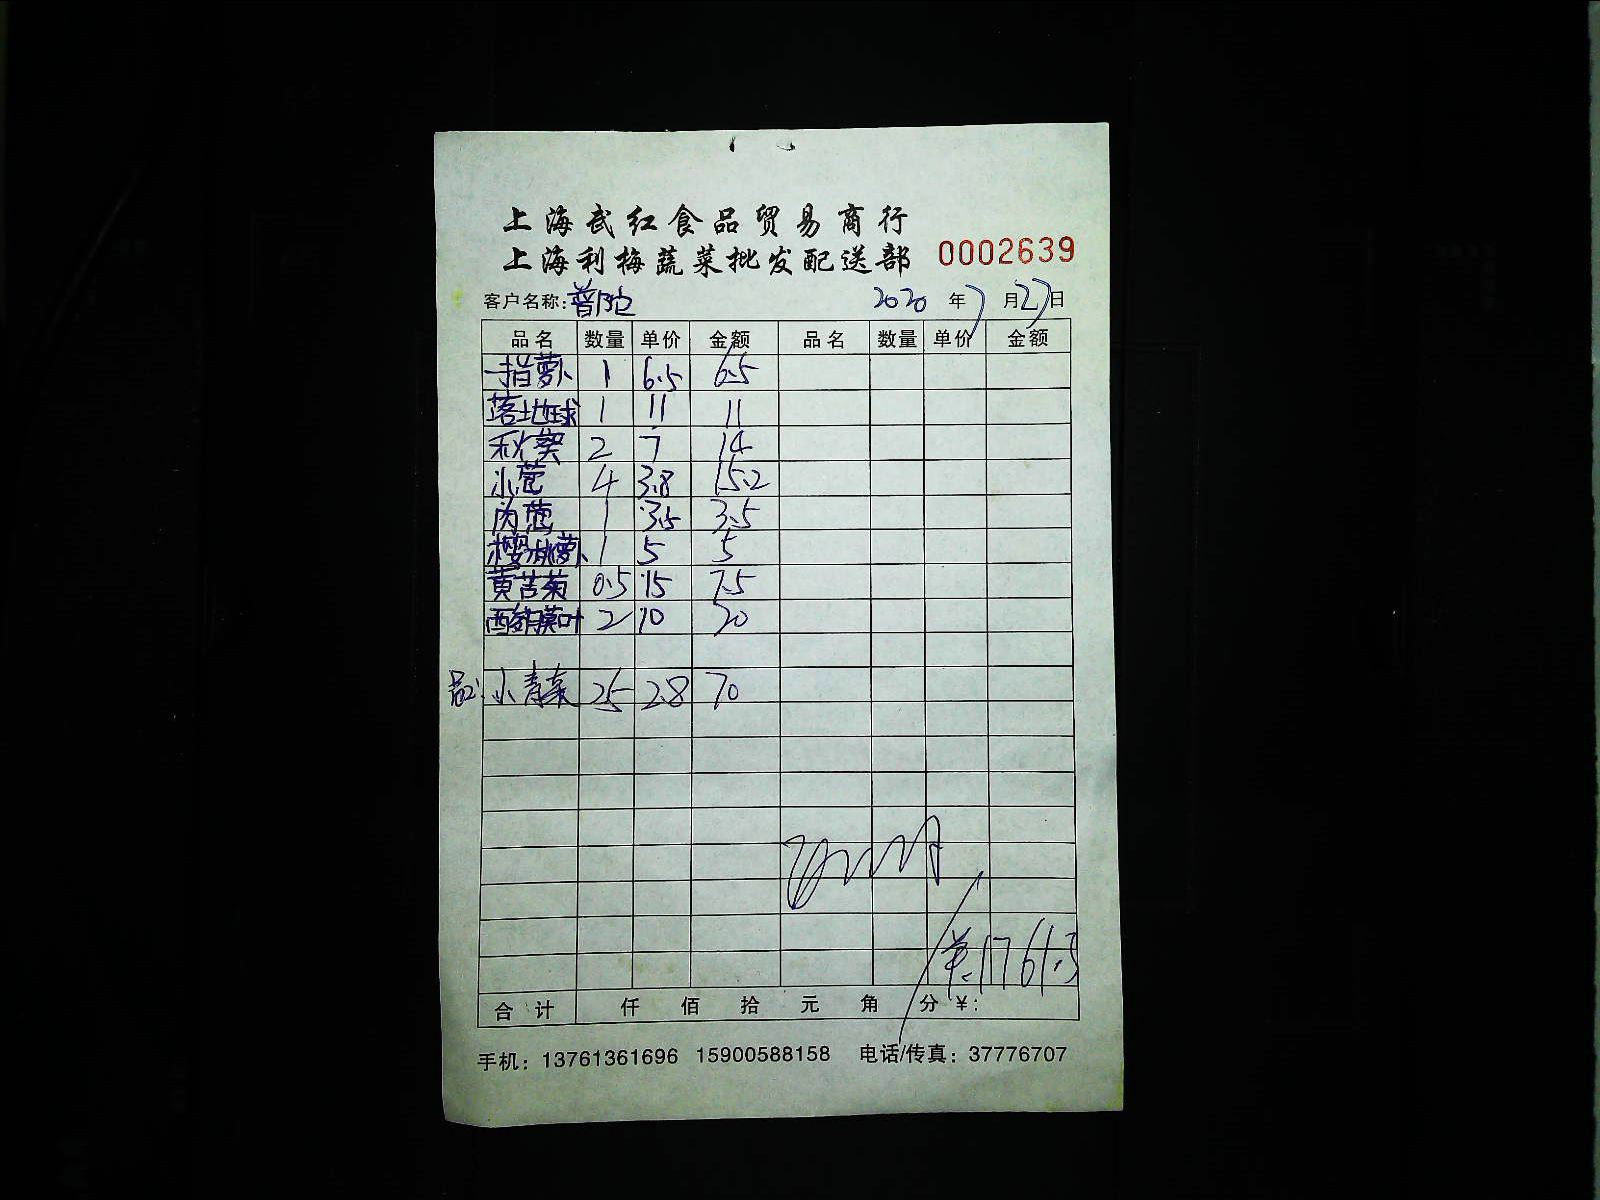 上海武红食品贸易商行
上海利梅蔬菜批发配送部 0002639
客户名称:普陀 2020 年 7 月 27 日
品名 数量 单价 金额 品名 数量 单价 金额
手指萝卜 1 6.5 6.5
落地球 1 11 11
秋葵 2 7 14
小葱 4 3.8 15.2
1 3.5 3.5
樱桃萝卜 1 5 5
黄苦菊 0.5 15 7.5
2 10 20
小青菜 25 2.8 70
1761.3
合计 仟 佰 拾 元 角 分 ¥:
手机: 13761361696 15900588158 电话/传真: 37776707